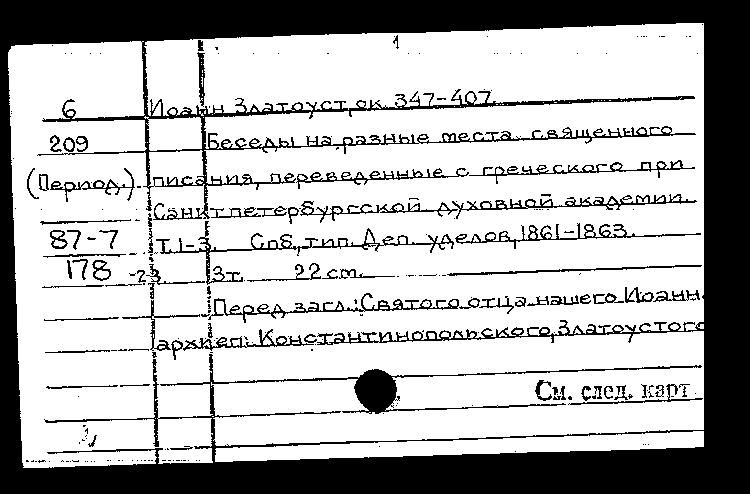 1
6 Иоанн Златоуст, ок. 347-407.
209 Беседы на разные места священного
(Период.) писания, переведенные с греческого при
Санктпетербургской духовной академии.
87-7 Т. 1-3. Спб, тип. Деп. уделов, 1861-1863.
178 -23 3т. 22 cm.
Перед загл.: Святого отца нашего Иоанн.
архиеп. Константинопольского, Златоустого
См. след. карт